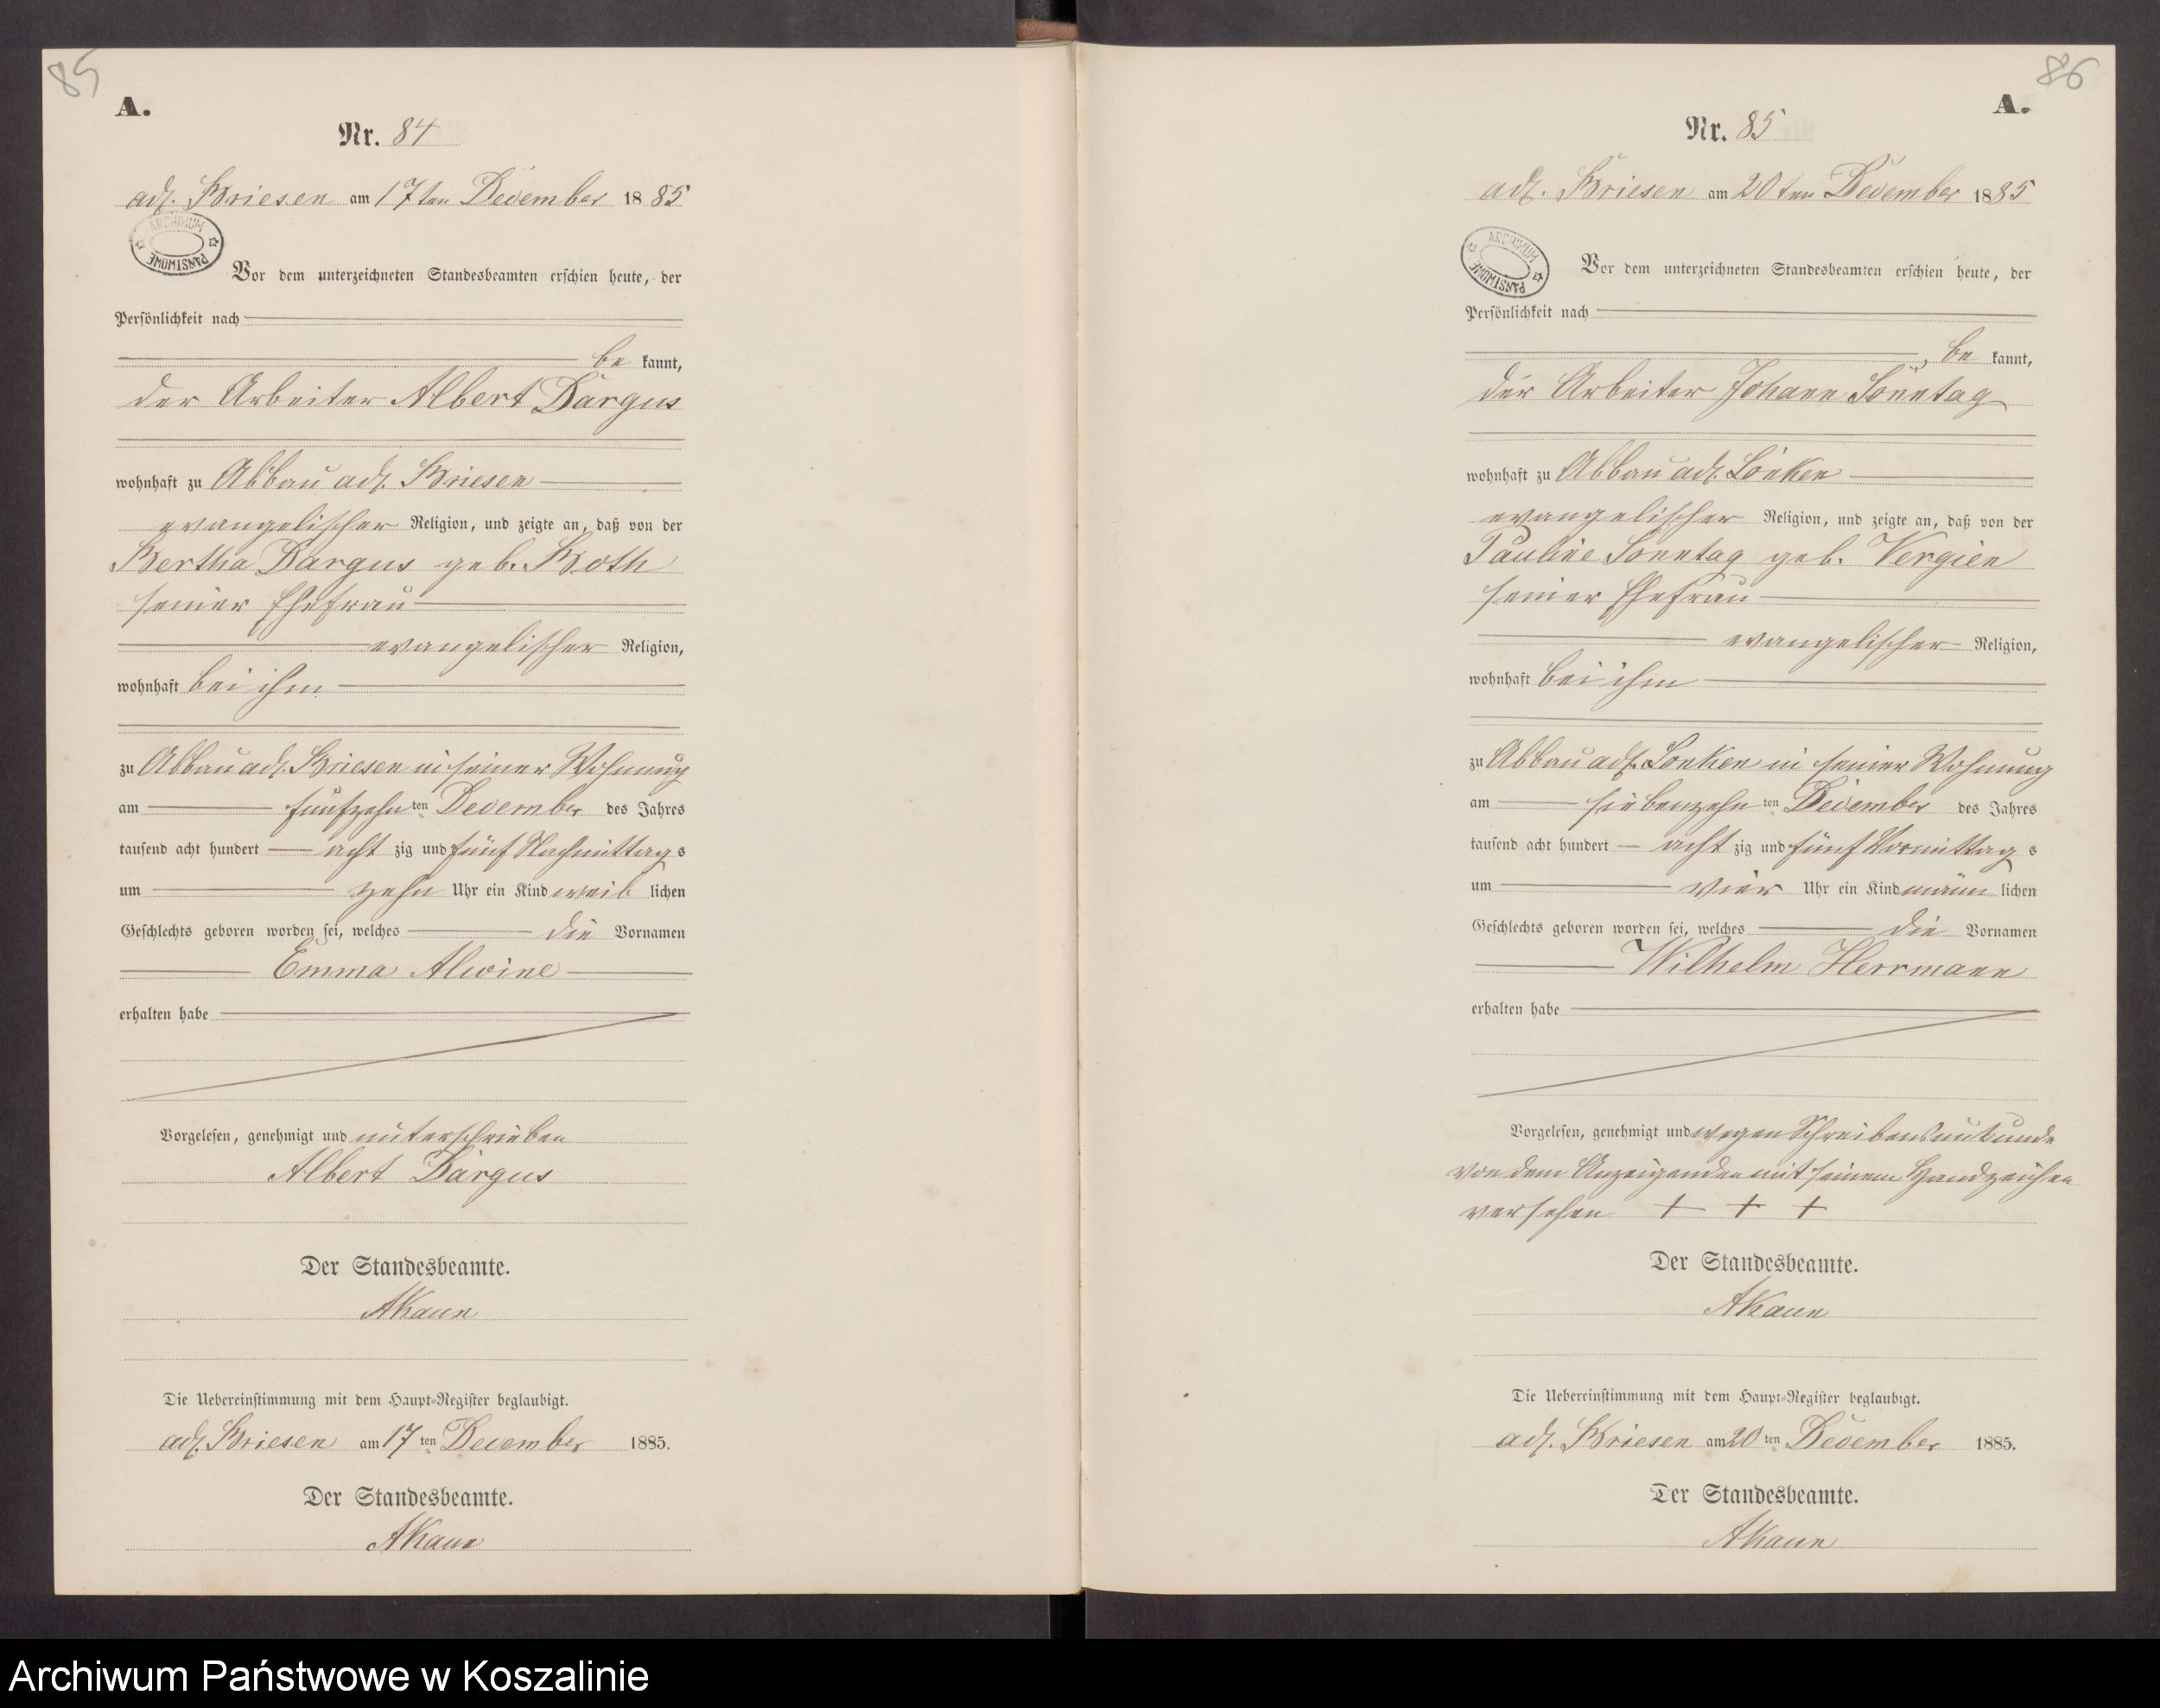 85
A.
Nr. 84
adl. Briesen am 17ten December 1885
ARCHIWUM PAŃSTWOWE
Vor dem unterzeichneten Standesbeamten erschien heute, der
Persönlichkeit nach
be kannt,
der Arbeiter Albert Dargus
wohnhaft zu Abbau adl. Briesen
evangelischer Religion, und zeigte an, daß von der
Bertha Dargus geb. Both
seiner Ehefrau
evangelischer Religion,
wohnhaft bei ihm
zu Abbau adl. Briesen in seiner Wohnung
am fünfzehn ten December des Jahres
tausend acht hundert acht zig und fünf Nachmittags
um zehn Uhr ein Kind weib lichen
Geschlechts geboren worden sei, welches die Vornamen
Emma Alwine
erhalten habe
Vorgelesen, genehmigt und unterschrieben
Albert Dargus
Der Standesbeamte.
AKaun
Die Uebereinstimmung mit dem Haupt-Register beglaubigt.
adl. Briesen am 17 ten December 1885.
Der Standesbeamte.
AKaun
86
A.
Nr. 85
adl. Briesen am 20ten December 1885
ARCHIWUM PAŃSTWOWE
Vor dem unterzeichneten Standesbeamten erschien heute, der
Persönlichkeit nach
, be kannt,
der Arbeiter Johann Sonntag
wohnhaft zu Abbau adl. Lonken
evangelischer Religion, und zeigte an, daß von der
Pauline Sonntag geb. Vergien
seiner Ehefrau
evangelischer Religion,
wohnhaft bei ihm
zu Abbau adl. Lonken in seiner Wohnung
am siebenzehn ten December des Jahres
tausend acht hundert acht zig und fünf Vormittag s
um vier Uhr ein Kind männ lichen
Geschlechts geboren worden sei, welches die Vornamen
Wilhelm Herrmann
erhalten habe
Vorgelesen, genehmigt und wegen Schreibensunkunde
von dem Anzeigenden mit seinem Handzeichen
versehen + + +
Der Standesbeamte.
AKaun
Die Uebereinstimmung mit dem Haupt-Register beglaubigt.
adl. Briesen am 20 ten December 1885.
Der Standesbeamte.
AKaun
Archiwum Państwowe w Koszalinie